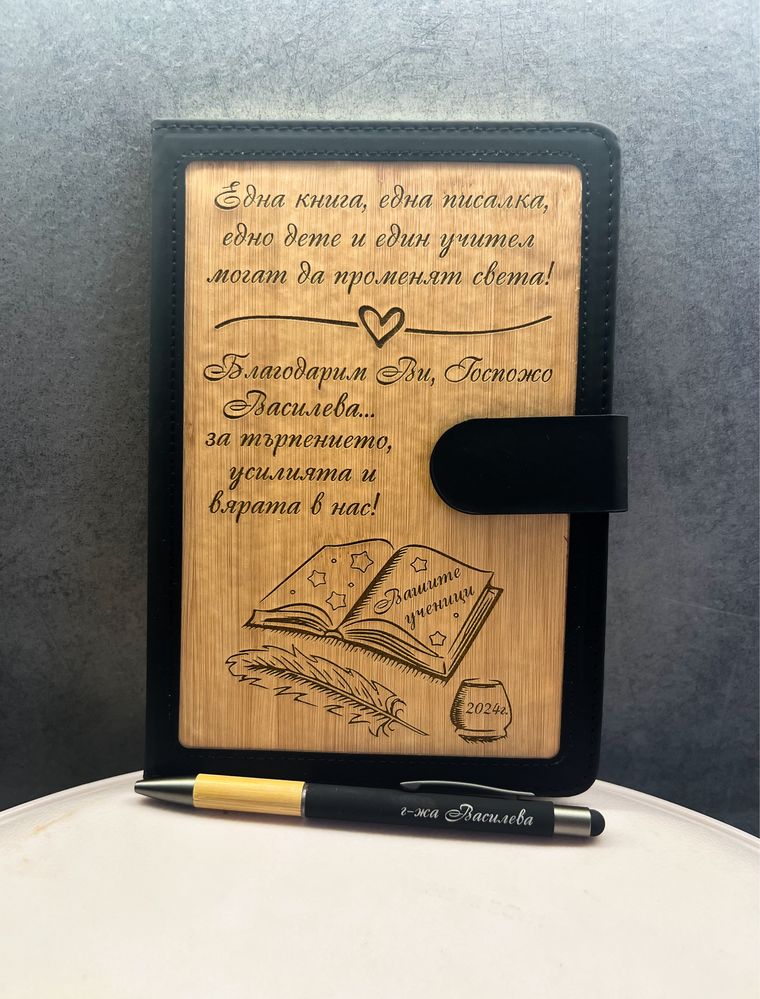 Една книга, една писалка,
едно дете и един учител
могат да променят света!
Благодарим Ви, Госпожо
Василева...
за търпението,
усилията и
вярата в нас!
Вашите
ученици
2024г.
г-жа Василева